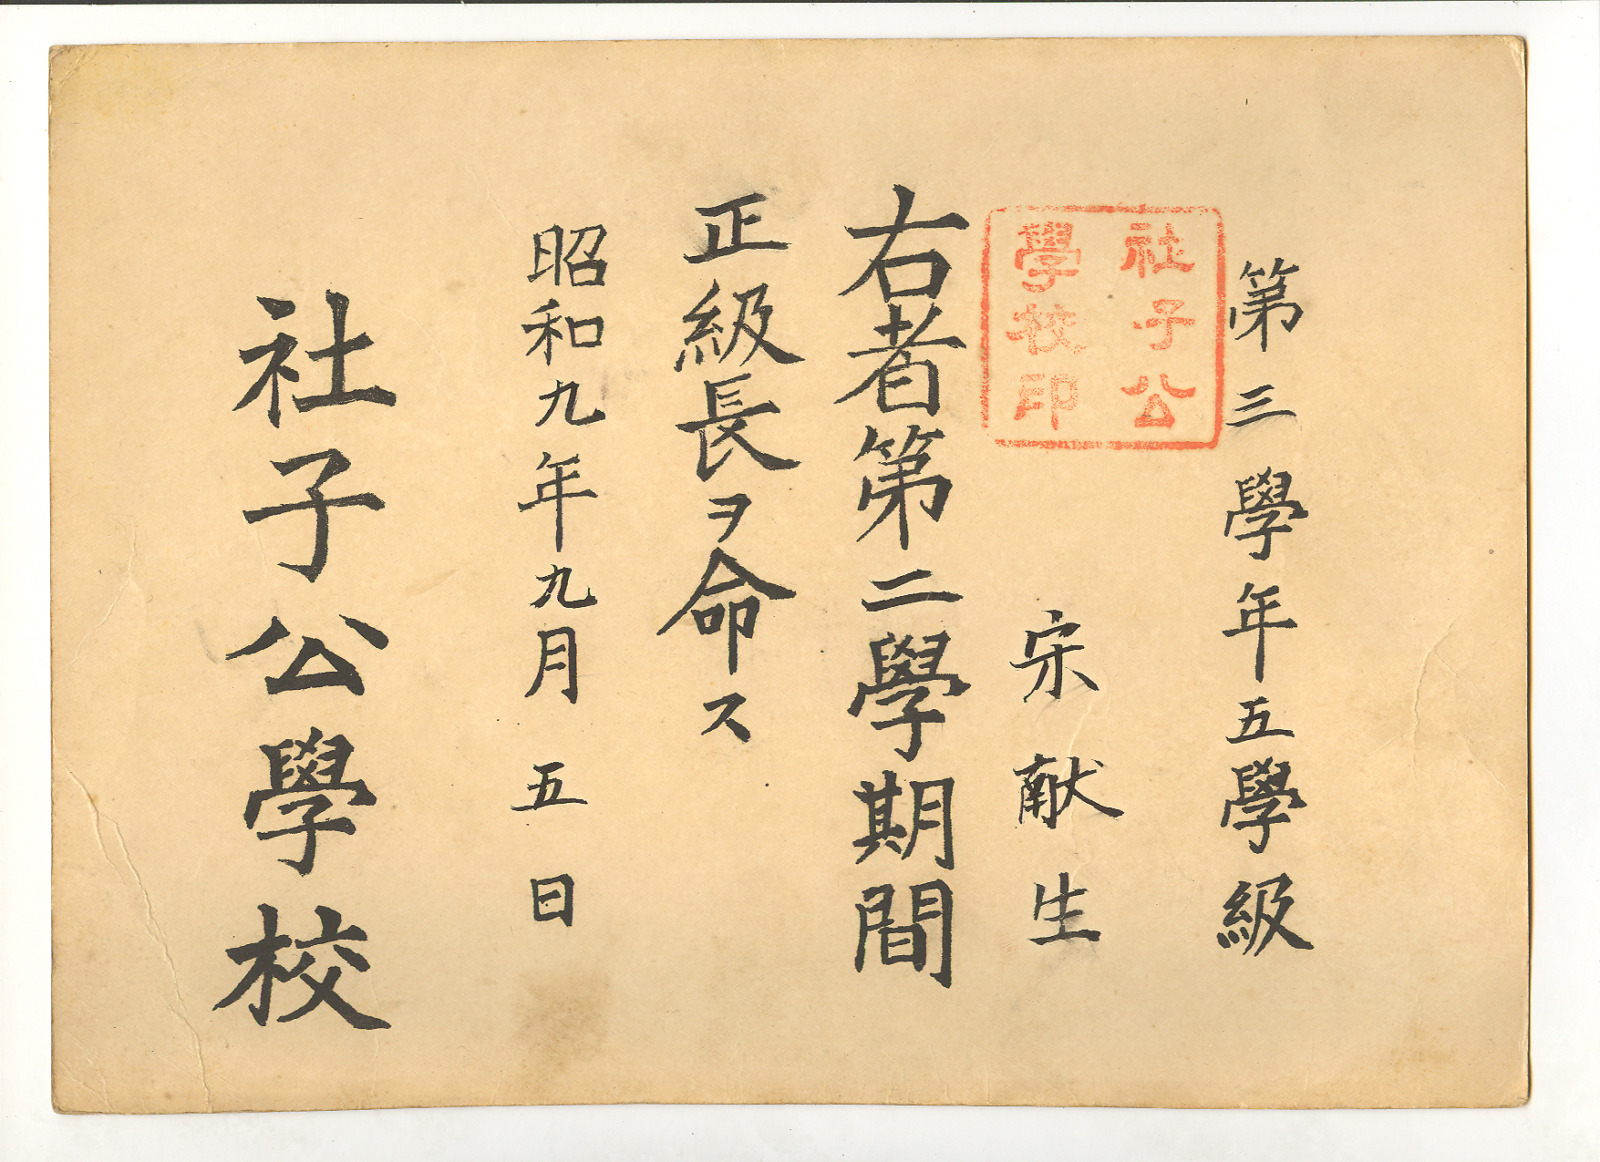 第三學年五學級
宋献生
社子公
學校印
右者第二學期間
正級長ヲ命ス
昭和九年九月五日
社子公學校